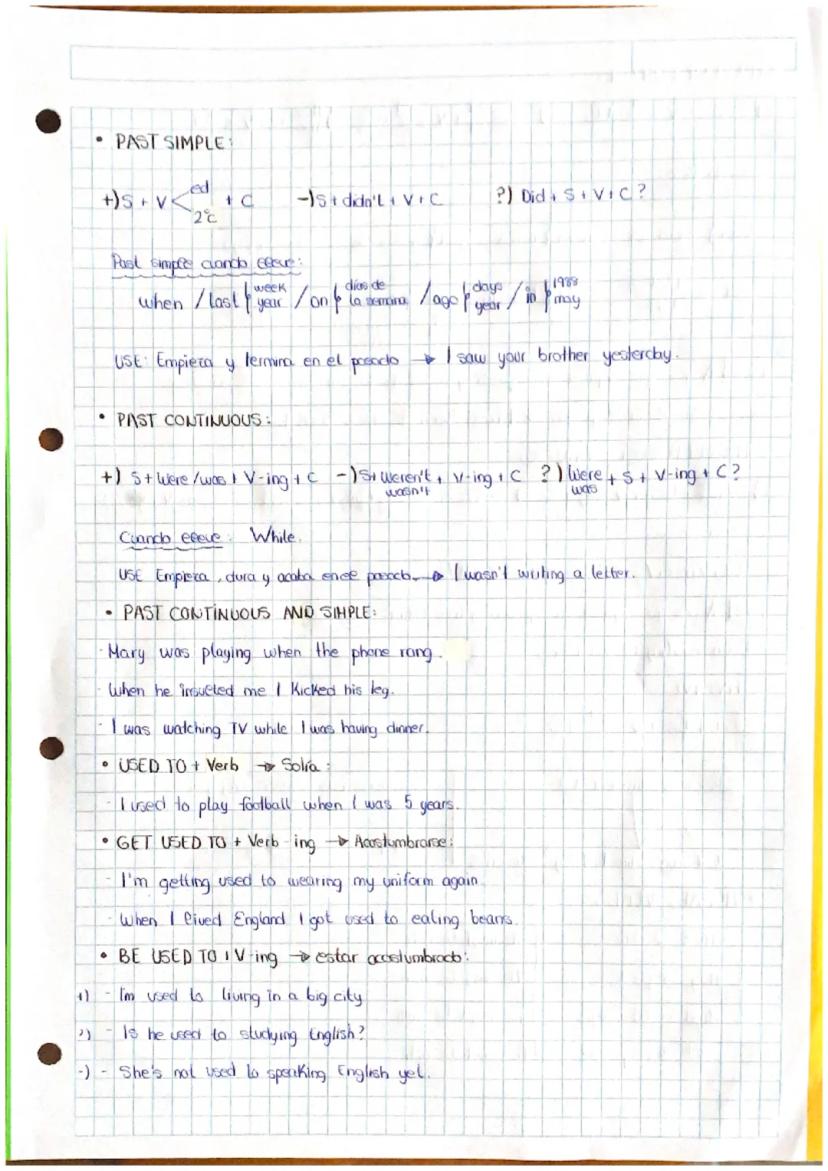 • PAST SIMPLE:
+) S + V < ed / 2ªc + C   -) S + didn't + V + C   ?) Did + S + V + C?
Past simple cuando lleve:
when / last { week year / on { días de la semana / ago { days year / in { 1988 may
USE: Empieza y termina en el pasado → I saw your brother yesterday.
• PAST CONTINUOUS:
+) S + Were/was + V-ing + C   -) S + weren't wasn't + V-ing + C   ?) Were was + S + V-ing + C?
Cuando lleve: While.
USE Empieza, dura y acaba en el pasado → I wasn't writing a letter.
• PAST CONTINUOUS AND SIMPLE:
- Mary was playing when the phone rang.
- When he insulted me I kicked his leg.
- I was watching TV while I was having dinner.
• USED TO + Verb → Solía:
- I used to play football when I was 5 years.
• GET USED TO + Verb-ing → Acostumbrarse:
- I'm getting used to wearing my uniform again
- When I lived England I got used to eating beans.
• BE USED TO + V-ing → estar acostumbrado:
+) - I'm used to living in a big city
?) - Is he used to studying English?
-) - She's not used to speaking English yet.